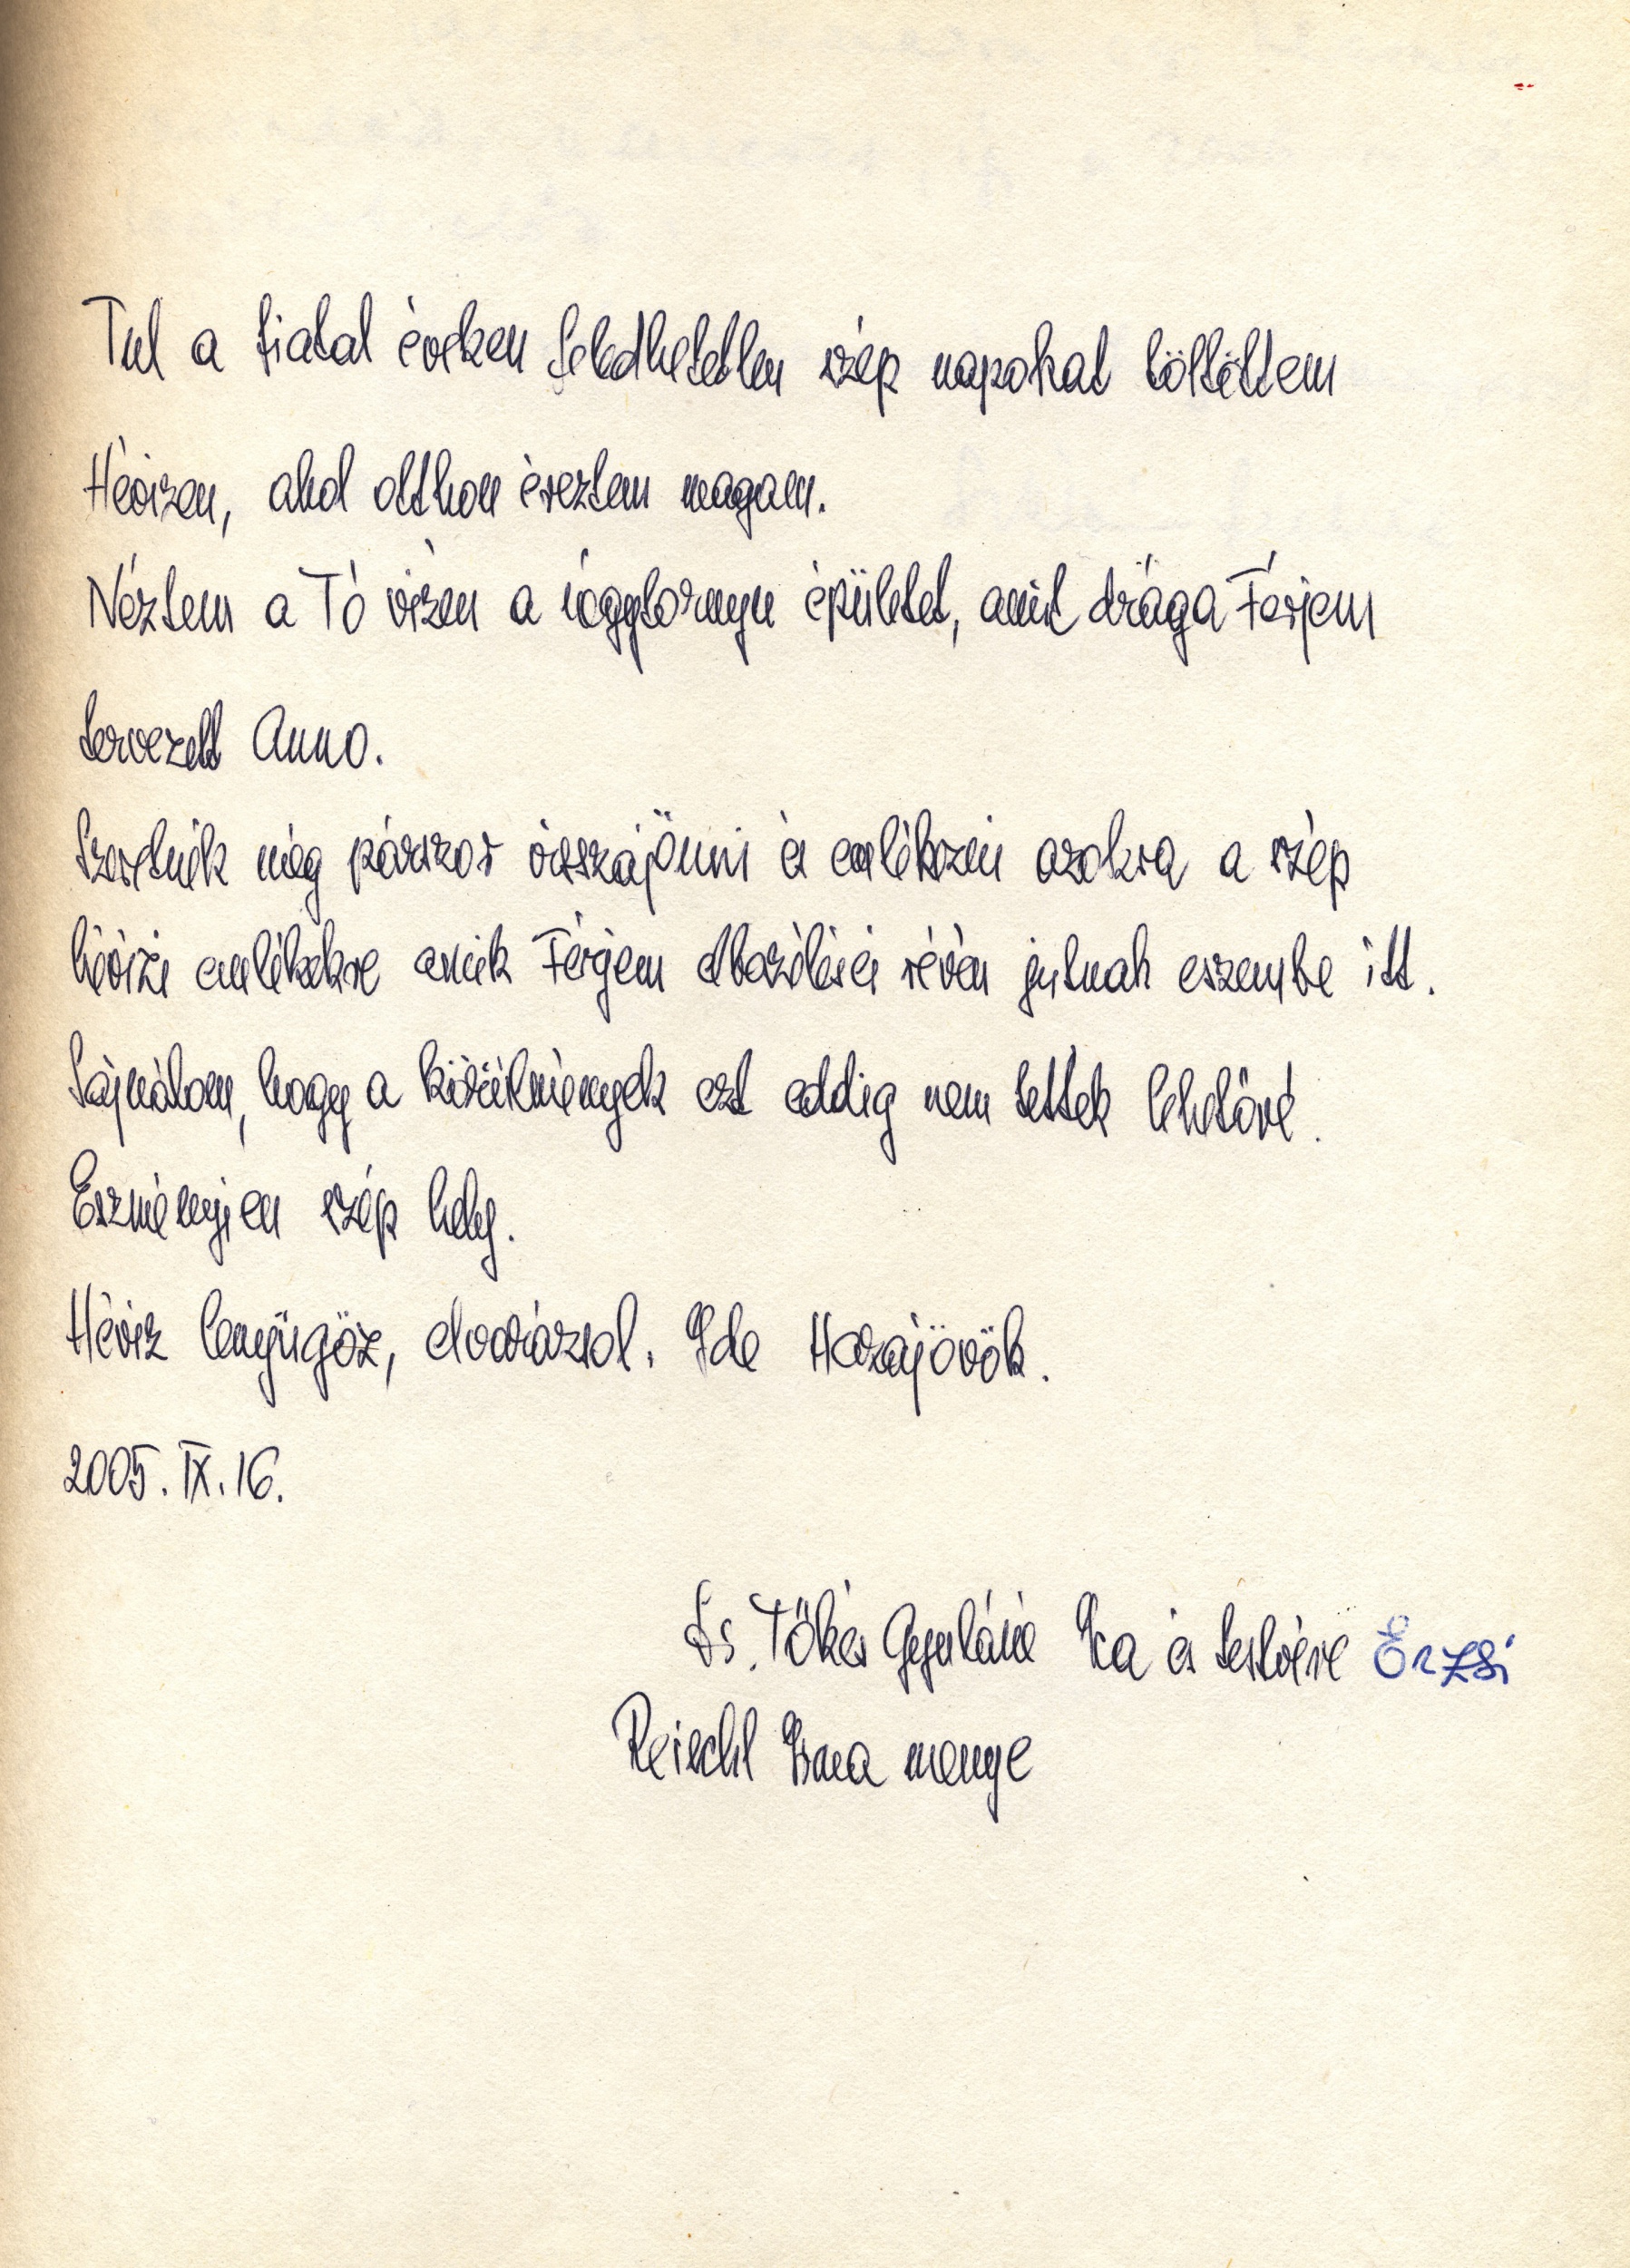 Tul a fiatal éveken feledhetetlen szép napokat töltöttem
Hévizen, ahol otthon éreztem magam.
Néztem a Tó vizén a négytornyu épületet, amit drága Férjem
tervezett Anno.
Szeretnék még párszor visszajönni és emlékezni azokra a szép
hévizi emlékekre amik Férjem elbeszélései révén jutnak eszembe itt.
Sajnálom, hogy a körülmények ezt eddig nem tették lehetővé.
Eszményien szép hely.
Héviz lenyügöz, elvarázsol. Ide Hazajövök.
2005. IX. 16.
Tőkés Gyuláné Ica és testvére Erzsi
Reischl Imre menye